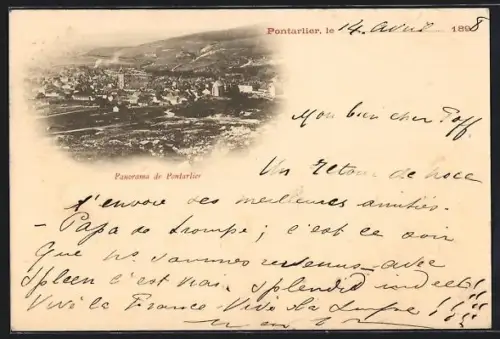 Pontarlier, le 14 Avril 1898
Mon bien cher Poff.
Un retour de noce
t'envoie ses meilleures amitiés.
Panorama de Pontarlier
– Papa se trompe ; c'est ce soir
que ns sommes revenus avec
Spleen c'est vrai. splendid !!!
Vive la France Vive la !!!